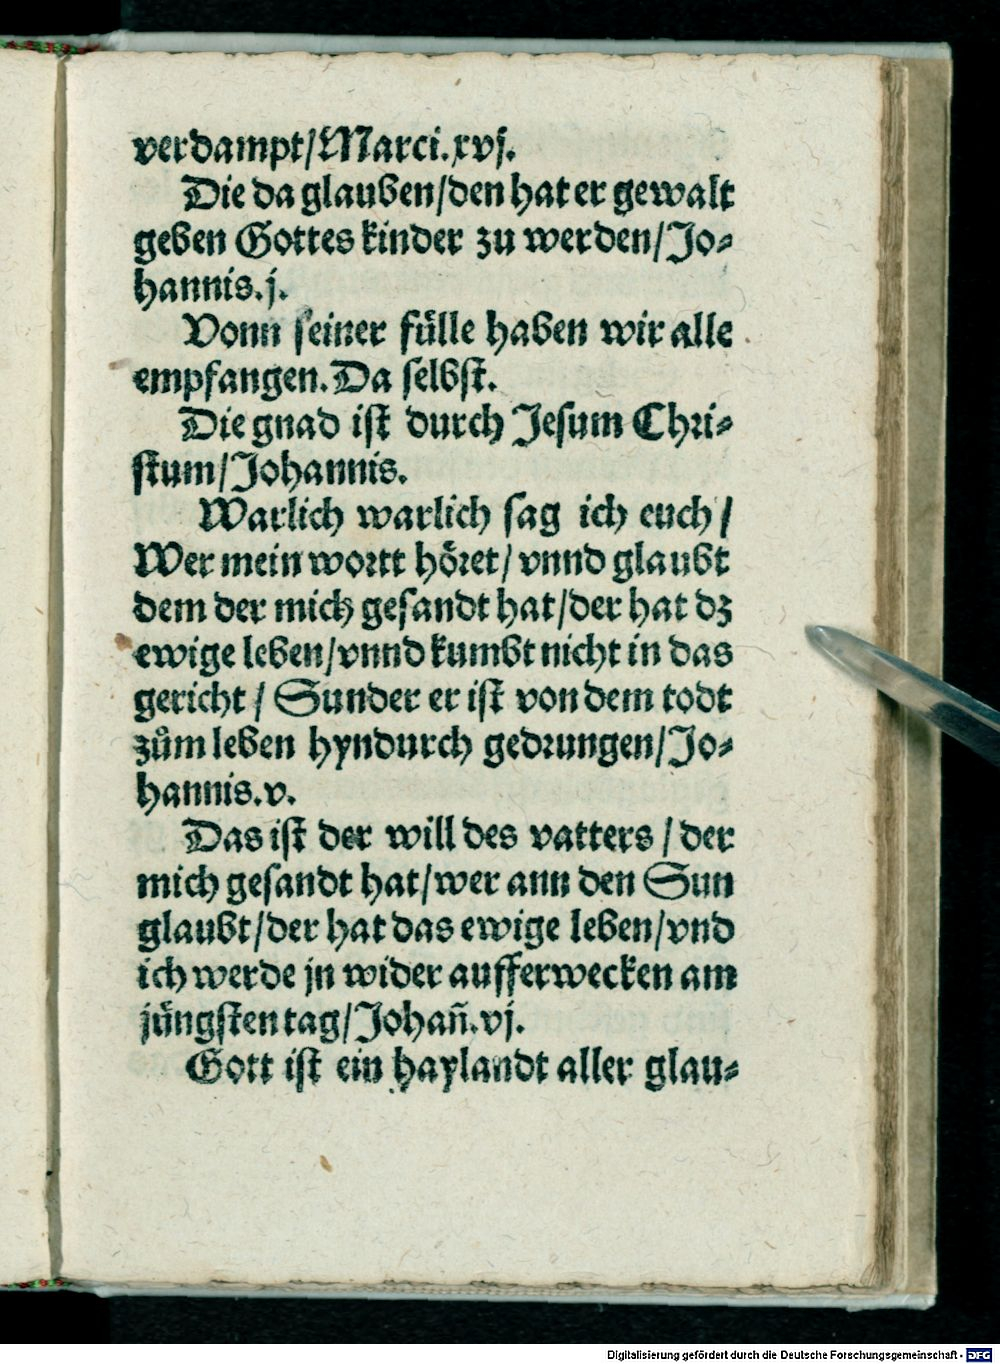 verdampt/Marci.xvj.
Die da glauben/den hat er gewalt
geben Gottes kinder zu werden/Jo⸗
hannis.j.
Vonn seiner fülle haben wir alle
empfangen. Da selbst.
Die gnad ist durch Jesum Chri⸗
stum/Johannis.
Warlich warlich sag ich euch/
Wer mein wortt höret/vnnd glaubt
dem der mich gesandt hat/der hat dz
ewige leben/vnnd kumbt nicht in das
gericht/Sunder er ist von dem todt
zům leben hyndurch gedrungen/Jo⸗
hannis.v.
Das ist der will des vatters/der
mich gesandt hat/wer ann den Sun
glaubt/der hat das ewige leben/vnd
ich werde jn wider aufferwecken am
jüngsten tag/Johañ.vj.
Gott ist ein haylandt aller glau⸗
Digitalisierung gefördert durch die Deutsche Forschungsgemeinschaft - DFG